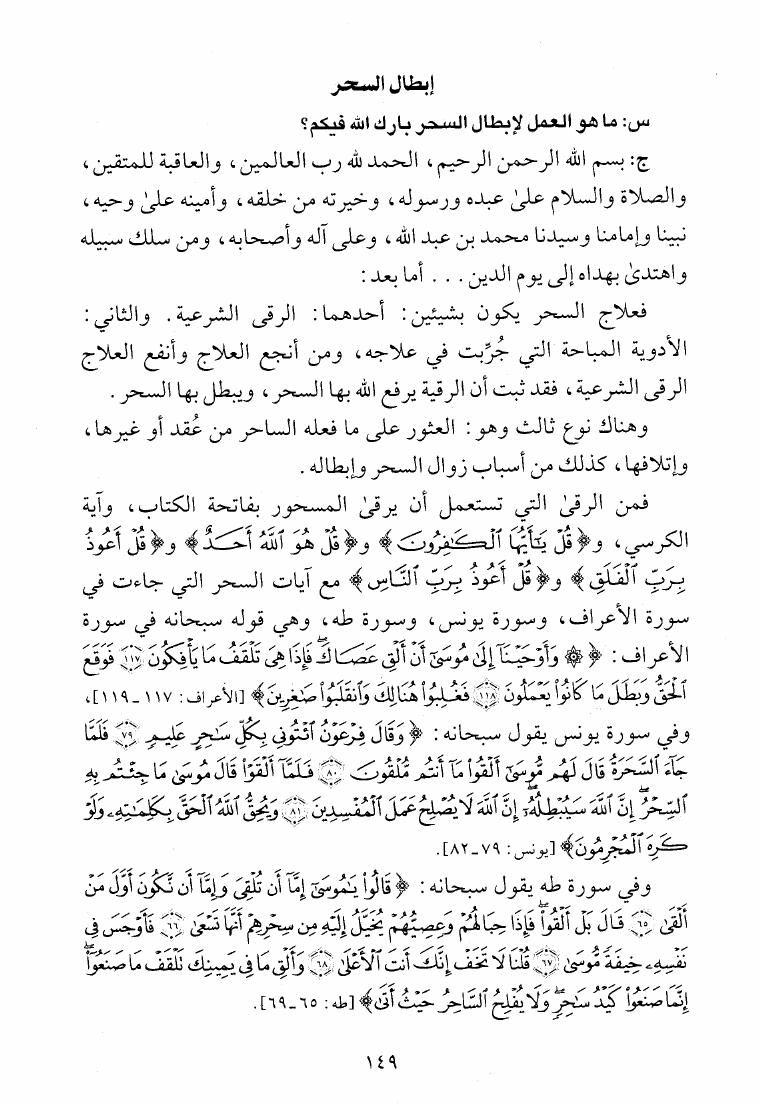 إبطال السحر
س: ما هو العمل لإبطال السحر بارك الله فيكم؟
ج: بسم الله الرحمن الرحيم، الحمد لله رب العالمين، والعاقبة للمتقين،
والصلاة والسلام علىٰ عبده ورسوله، وخيرته من خلقه، وأمينه علىٰ وحيه،
نبينا وإمامنا وسيدنا محمد بن عبد الله، وعلى آله وأصحابه، ومن سلك سبيله
واهتدىٰ بهداه إلى يوم الدين . . . أما بعد:
فعلاج السحر يكون بشيئين: أحدهما: الرقى الشرعية. والثاني:
الأدوية المباحة التي جُرِّبت في علاجه، ومن أنجع العلاج وأنفع العلاج
الرقى الشرعية، فقد ثبت أن الرقية يرفع الله بها السحر، ويبطل بها السحر.
وهناك نوع ثالث وهو: العثور على ما فعله الساحر من عُقد أو غيرها،
وإتلافها، كذلك من أسباب زوال السحر وإبطاله.
فمن الرقىٰ التي تستعمل أن يرقىٰ المسحور بفاتحة الكتاب، وآية
الكرسي، و﴿قُلْ يَٰٓأَيُّهَا ٱلْكَٰفِرُونَ﴾ و﴿قُلْ هُوَ ٱللَّهُ أَحَدٌ﴾ و﴿قُلْ أَعُوذُ
بِرَبِّ ٱلْفَلَقِ﴾ و﴿قُلْ أَعُوذُ بِرَبِّ ٱلنَّاسِ﴾ مع آيات السحر التي جاءت في
سورة الأعراف، وسورة يونس، وسورة طه، وهي قوله سبحانه في سورة
الأعراف: ﴿ ۞ وَأَوْحَيْنَآ إِلَىٰ مُوسَىٰٓ أَنْ أَلْقِ عَصَاكَ ۖ فَإِذَا هِىَ تَلْقَفُ مَا يَأْفِكُونَ ١١٧ فَوَقَعَ
ٱلْحَقُّ وَبَطَلَ مَا كَانُوا۟ يَعْمَلُونَ ١١٨ فَغُلِبُوا۟ هُنَالِكَ وَٱنقَلَبُوا۟ صَٰغِرِينَ﴾ [الأعراف: ١١٧ ـ ١١٩]،
وفي سورة يونس يقول سبحانه: ﴿وَقَالَ فِرْعَوْنُ ٱئْتُونِى بِكُلِّ سَٰحِرٍ عَلِيمٍ ٧٩ فَلَمَّا
جَآءَ ٱلسَّحَرَةُ قَالَ لَهُم مُّوسَىٰٓ أَلْقُوا۟ مَآ أَنتُم مُّلْقُونَ ٨٠ فَلَمَّآ أَلْقَوْا۟ قَالَ مُوسَىٰ مَا جِئْتُم بِهِ
ٱلسِّحْرُ ۖ إِنَّ ٱللَّهَ سَيُبْطِلُهُۥٓ ۖ إِنَّ ٱللَّهَ لَا يُصْلِحُ عَمَلَ ٱلْمُفْسِدِينَ ٨١ وَيُحِقُّ ٱللَّهُ ٱلْحَقَّ بِكَلِمَٰتِهِۦ وَلَوْ
كَرِهَ ٱلْمُجْرِمُونَ﴾ [يونس: ٧٩ ـ ٨٢].
وفي سورة طه يقول سبحانه: ﴿قَالُوا۟ يَٰمُوسَىٰٓ إِمَّآ أَن تُلْقِىَ وَإِمَّآ أَن نَّكُونَ أَوَّلَ مَنْ
أَلْقَىٰ ٦٥ قَالَ بَلْ أَلْقُوا۟ ۖ فَإِذَا حِبَالُهُمْ وَعِصِيُّهُمْ يُخَيَّلُ إِلَيْهِ مِن سِحْرِهِمْ أَنَّهَا تَسْعَىٰ ٦٦ فَأَوْجَسَ فِى
نَفْسِهِۦ خِيفَةً مُّوسَىٰ ٦٧ قُلْنَا لَا تَخَفْ إِنَّكَ أَنتَ ٱلْأَعْلَىٰ ٦٨ وَأَلْقِ مَا فِى يَمِينِكَ تَلْقَفْ مَا صَنَعُوٓا۟ ۖ
إِنَّمَا صَنَعُوا۟ كَيْدُ سَٰحِرٍ ۖ وَلَا يُفْلِحُ ٱلسَّاحِرُ حَيْثُ أَتَىٰ﴾ [طه: ٦٥ ـ ٦٩].
١٤٩